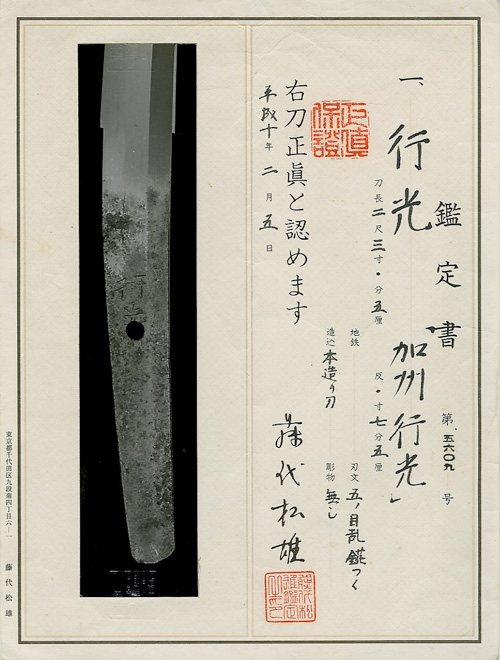 鑑定書
第 五六〇九 号
一、行光 加州行光」
刀長 二尺三寸・分五厘 反・寸七分五厘
地鉄 刃文 五ノ目乱
造込 本造り刀 彫物 無し
正真保證
右刀正眞と認めます
平成十年二月五日
藤代松雄
行光
東京都千代田区九段南四丁目六ー一 藤代松雄